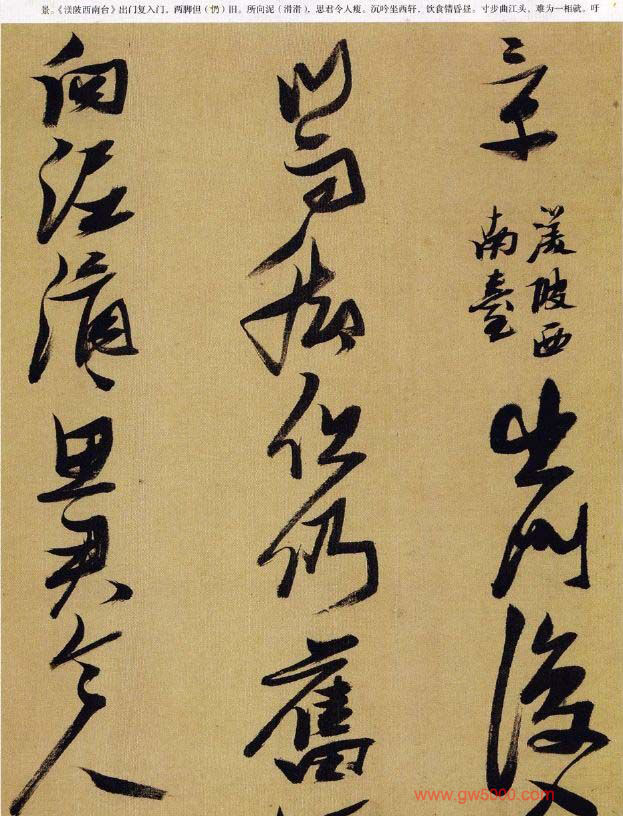 景。《渼陂西南台》出门复入门，两脚但（仍）旧。所向泥（滑滑），思君令人瘦。沉吟坐西轩，饮食错昏昼。寸步曲江头，难为一相就。吁
章
渼陂西
南臺
出門復入
門雨脚但仍舊
向泥滑〻思君令人
www.gw5000.com